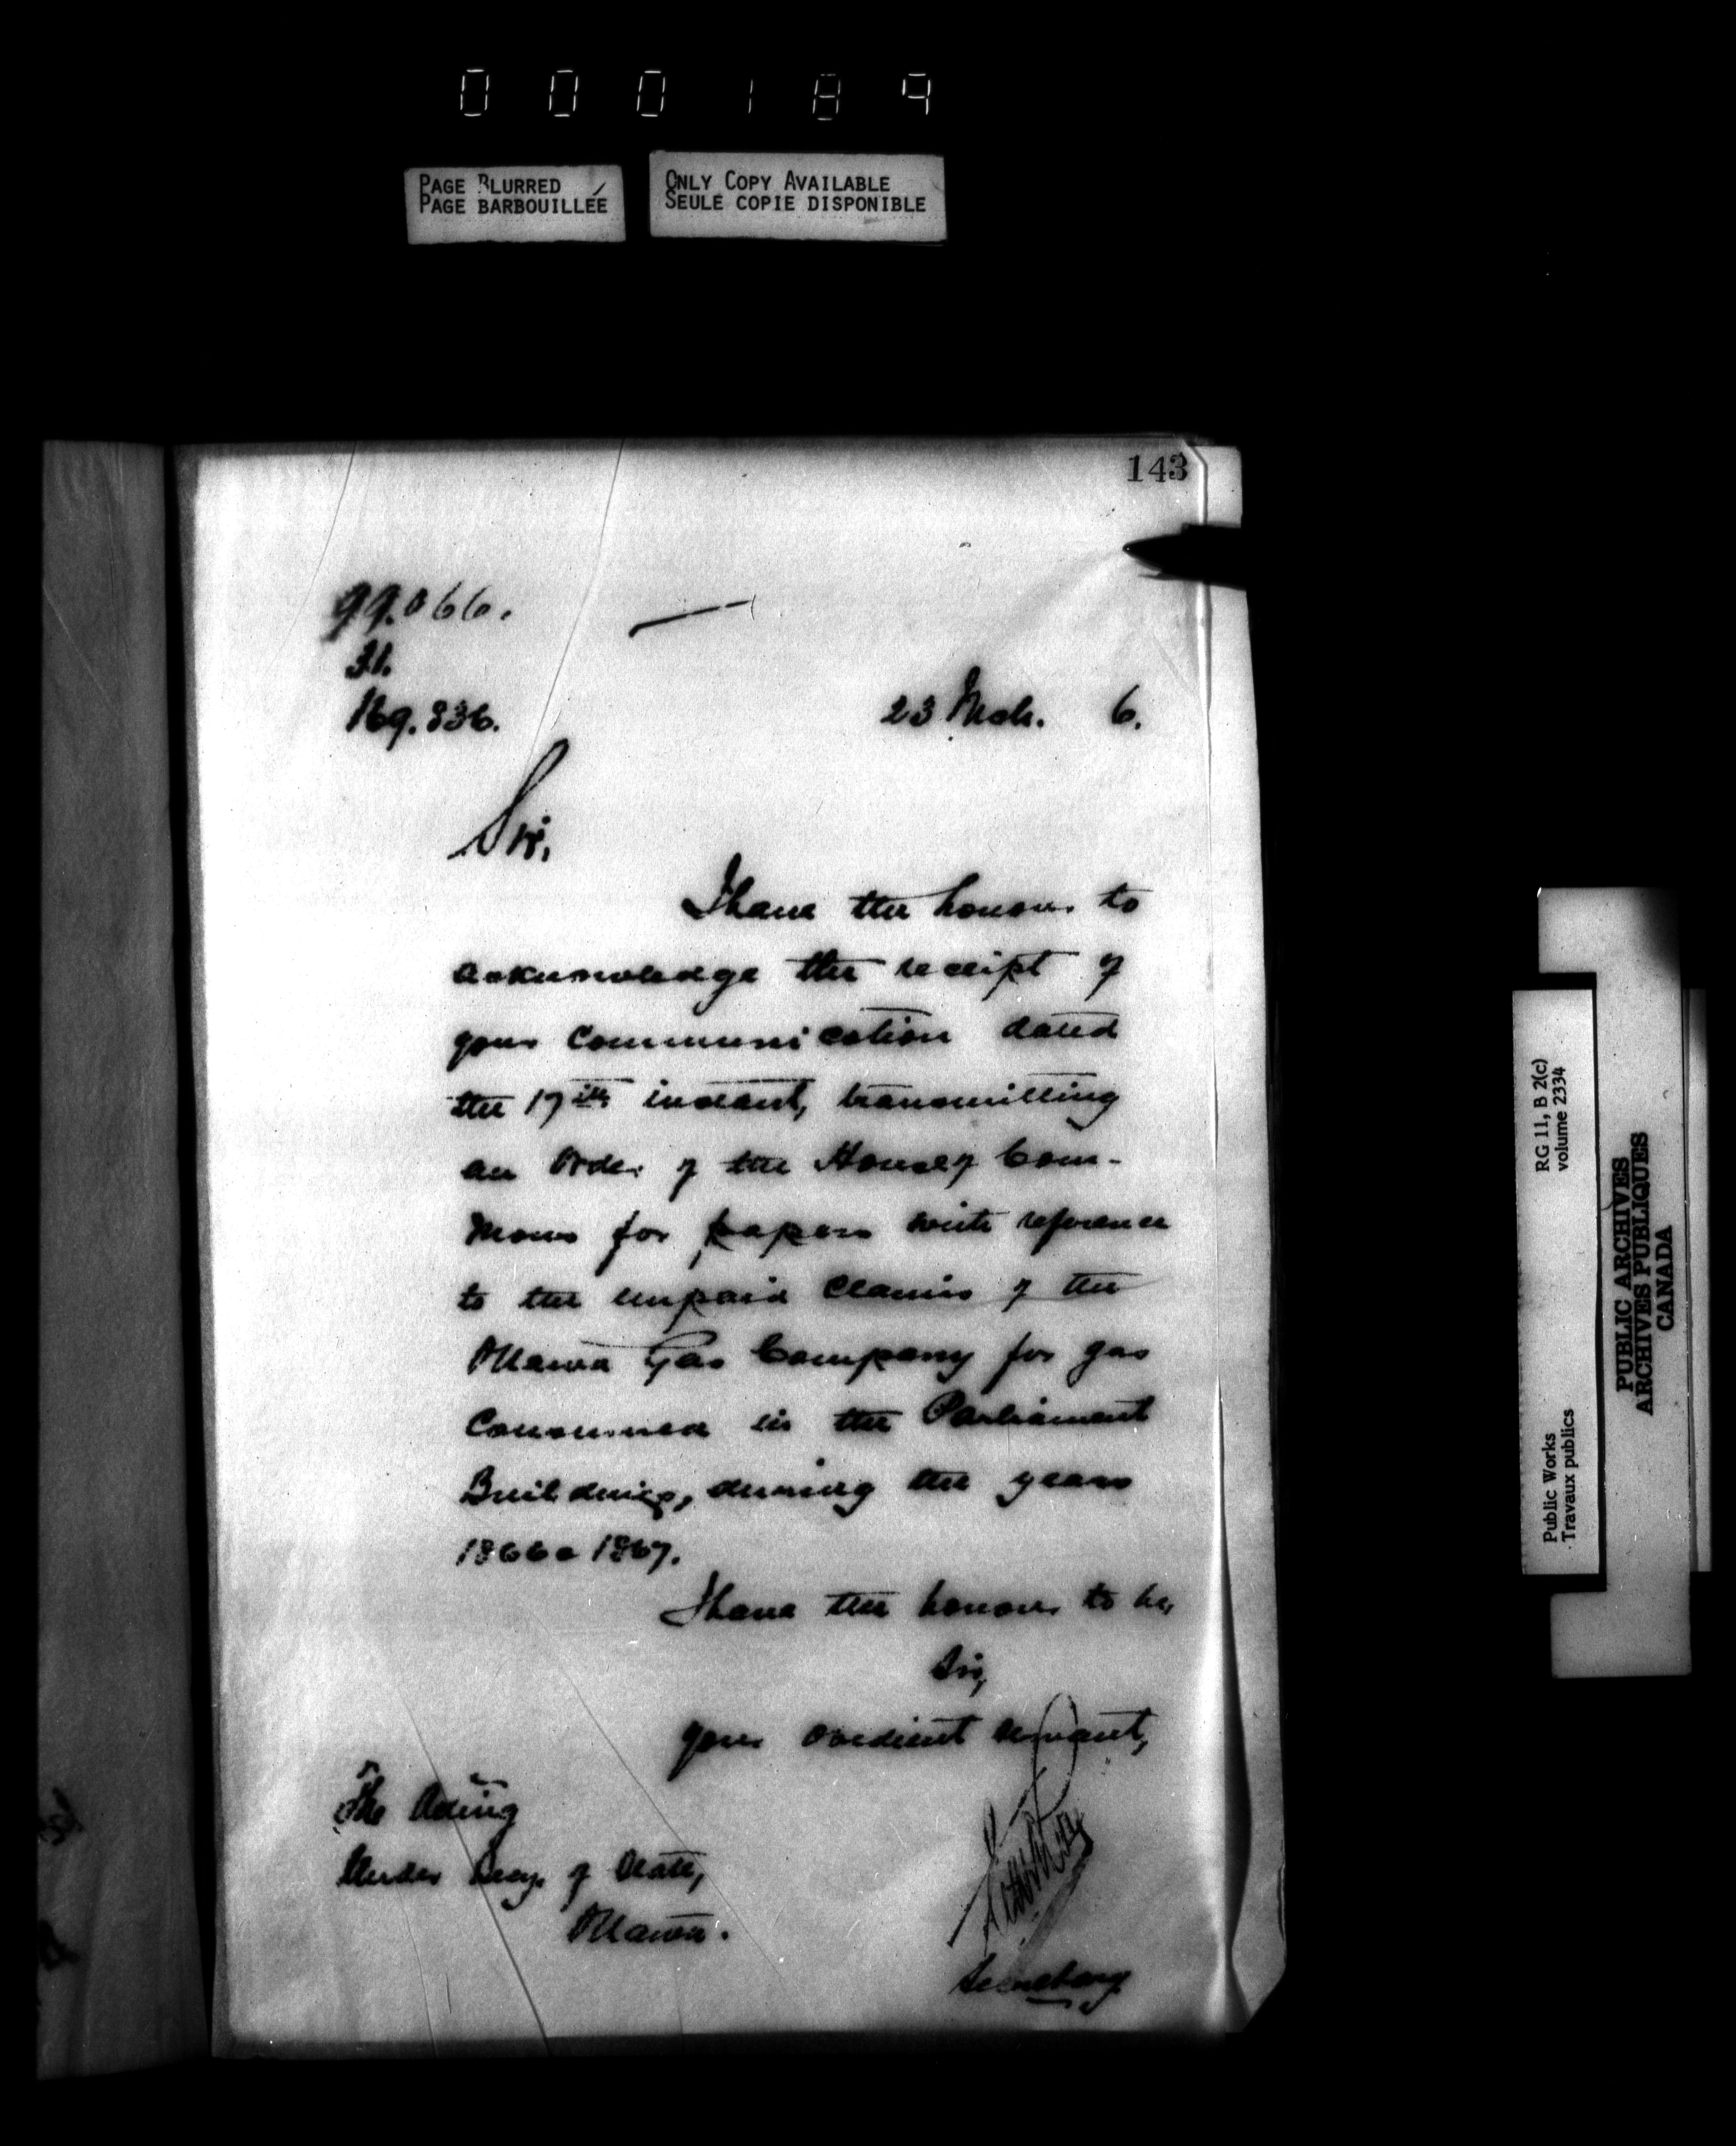 000189
PAGE BLURRED
PAGE BARBOUILLÉE
ONLY COPY AVAILABLE
SEULE COPIE DISPONIBLE
143
99.066.
31.
169.836.
23 Mch. 6.
Sir,
I have the honour to
acknowledge the receipt of
your Communication dated
the 17th instant, transmitting
an Order of the House of Com-
mons for papers with reference
to the unpaid claims of the
Ottawa Gas Company for gas
Consumed in the Parliament
Buildings, during the years
1866 & 1867.
I have the honour to be,
Sir,
Your obedient servant,
The Acting
Under Secy. of State,
Ottawa.
Secretary
RG 11, B 2(c)
volume 2334
Public Works
Travaux publics
PUBLIC ARCHIVES
ARCHIVES PUBLIQUES
CANADA